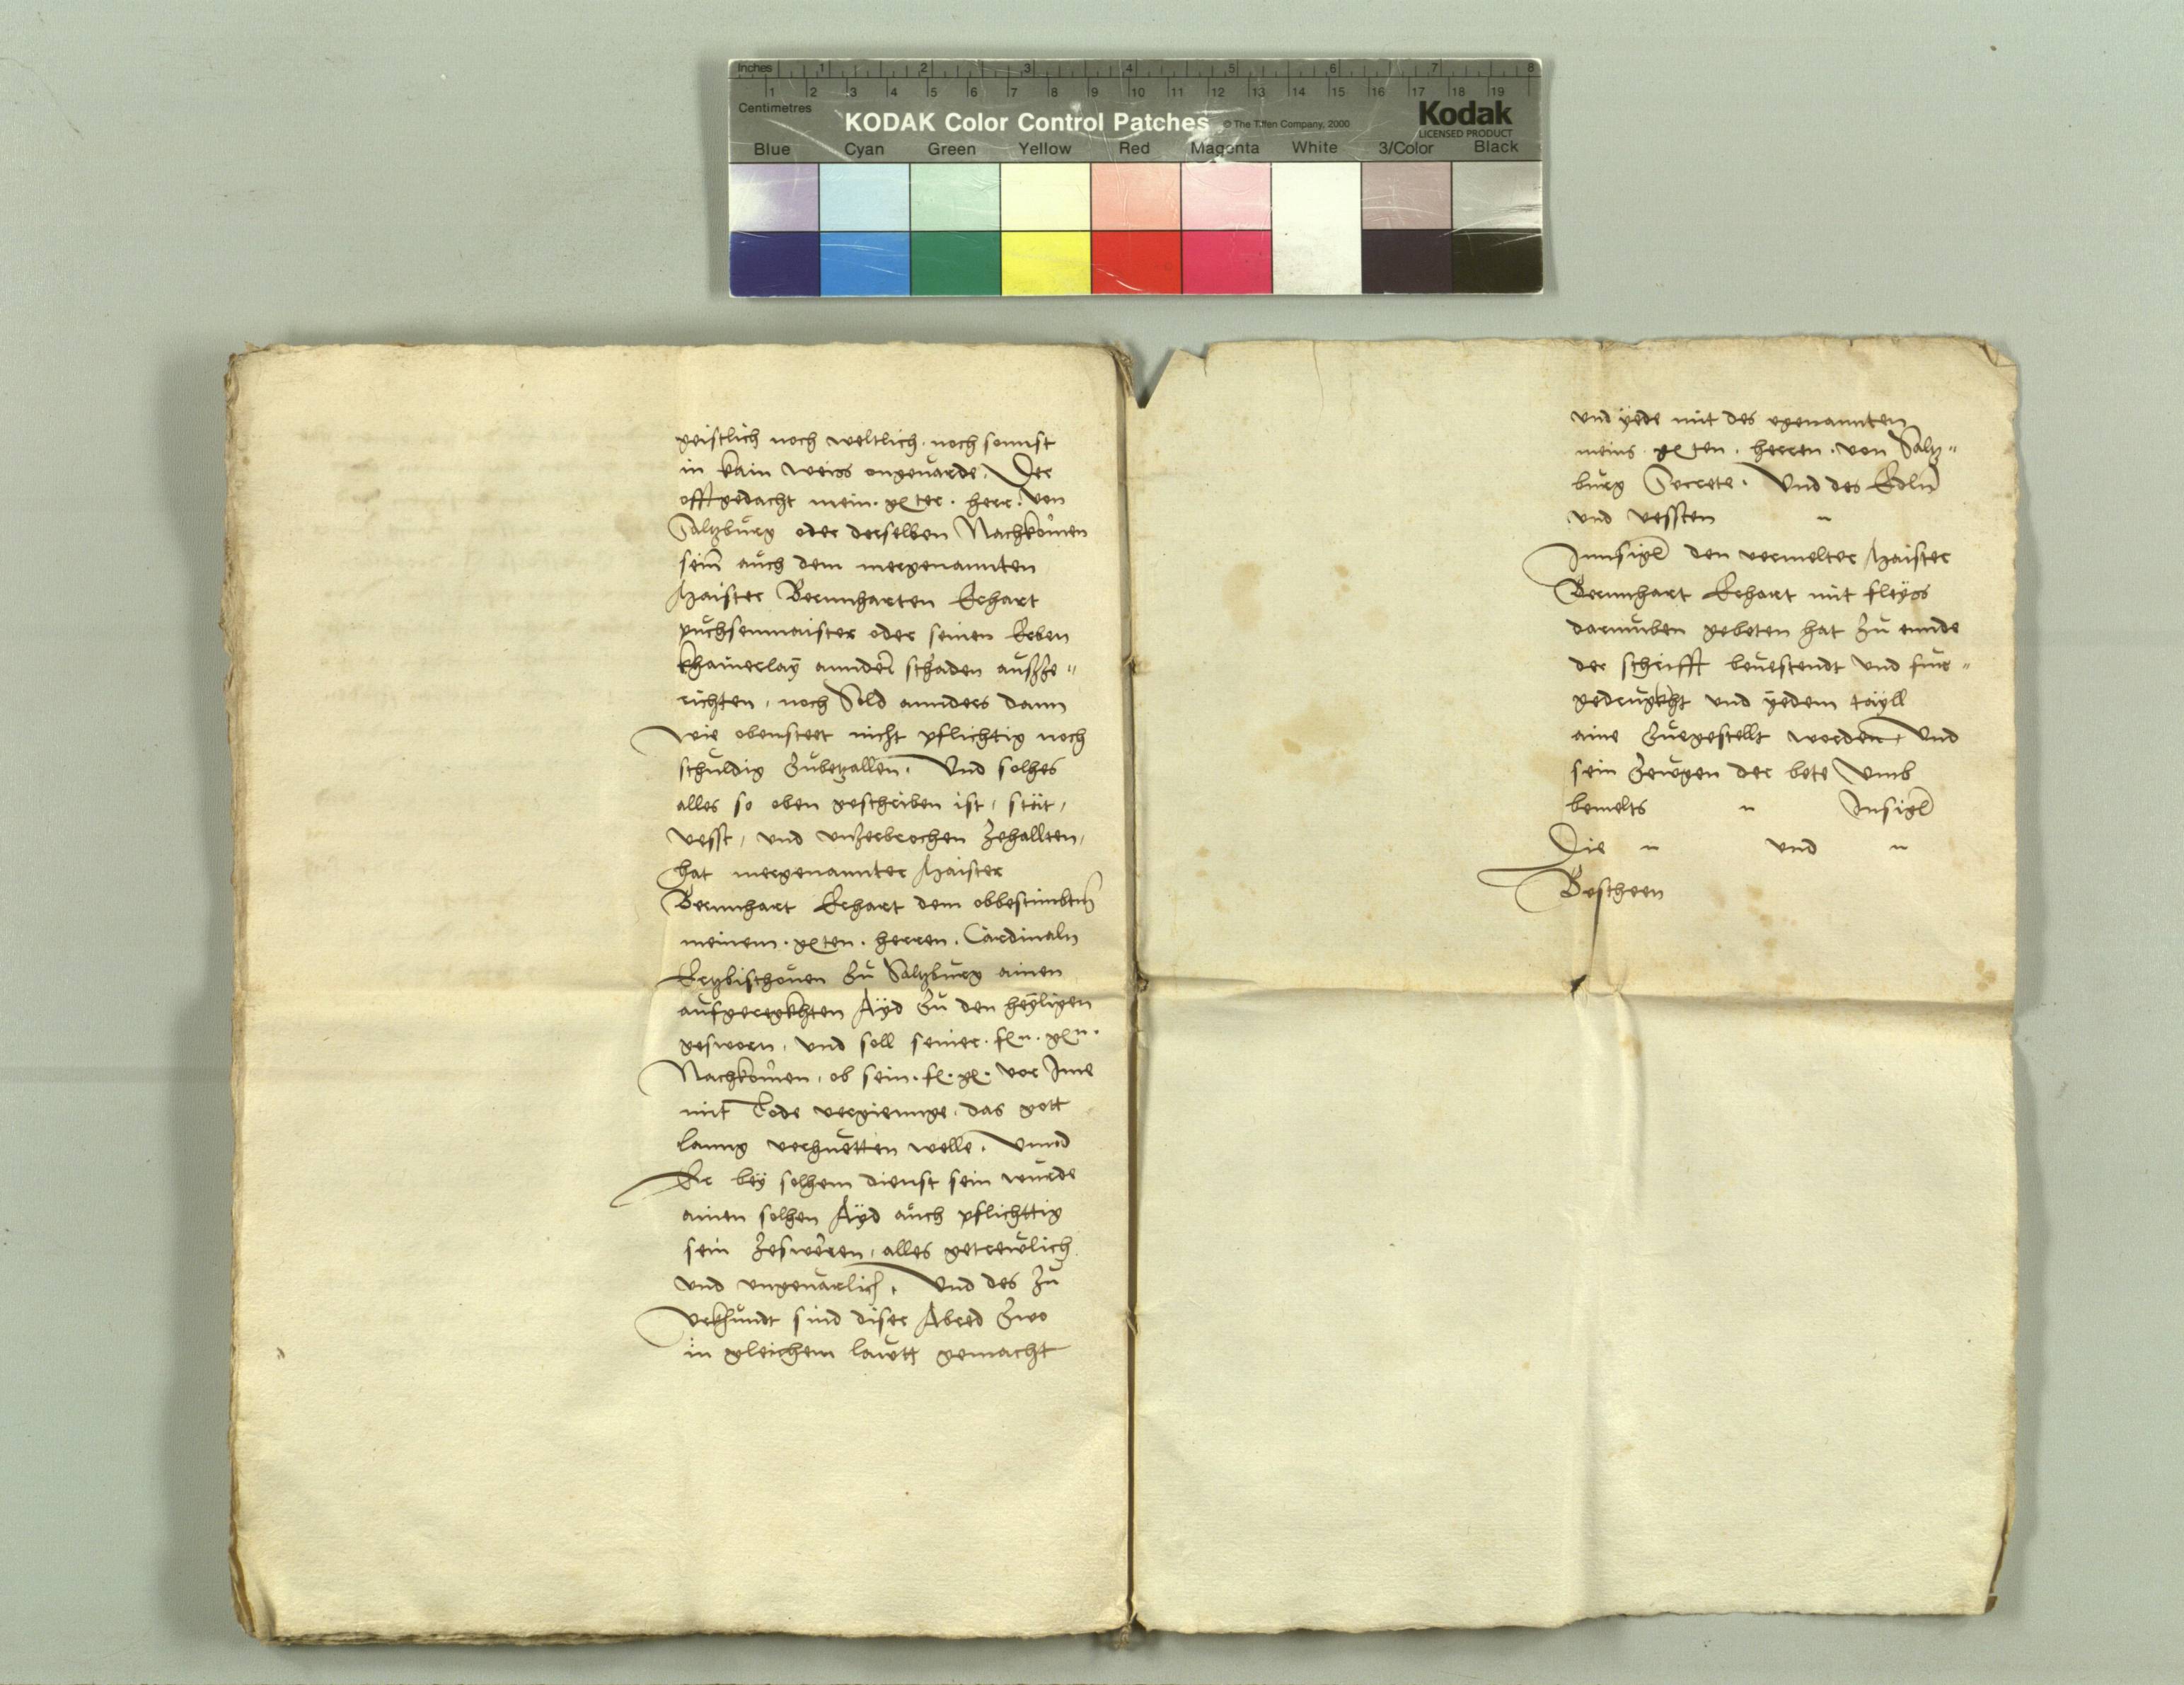 Inches 1 2 3 4 5 6 7 8
1 2 3 4 5 6 7 8 9 10 11 12 13 14 15 16 17 18 19
Centimetres
KODAK Color Control Patches © The Tiffen Company, 2000 Kodak
LICENSED PRODUCT
Blue Cyan Green Yellow Red Magenta White 3/Color Black
geistlich noch weltlich noch sonnst
in kain weiss ongeuärde. Der
offtgedacht mein. g ter. herr. von
Saltzburg oder derselben Nachkomen
sein auch dem mergenannten
Maister Bernnharten Erhart
puchsenmaister oder seinen Erben
khainerlaÿ annder schaden auszze„
richten, noch Sold annders dann
wie obensteet nicht pflichtig noch
schuldig zubetzallen. Und solhes
alles so oben geschriben ist, stät,
vesst, und unzerbrochen zehallten,
hat mergenannter Maister
Bernnhart Erhart dem obbestimbten
meinem. g ten. herren. Cardinaln
Ertzbischouen zu Saltzburg ainen
aufgeregkhten Aÿd zu den heÿligen
gesworn, und soll seiner. f n. g n.
Nachkomen, ob sein. f. g. vor Ime
mit Tode vergiennge, das gott
lanng verhuetten welle, vnnd
Er beÿ solhem dienst sein wurde
ainen solhen Aÿd auch pflichttig
sein zesweren, alles getrewlich
und ungeuärlich, Und des zu
Urkhundt sind diser Abred zwo
in gleichem lawtt gemacht
und ÿede mit des egenannten
meins g ten. herren. von Saltz„
burg Secrete. Und des Edln
und vessten n
Innsigl den vermelter Maister
Bernnhart Erhart mit fleÿss
darumben gebeten hat zu ennde
der schrifft beuestendt und fur„
gedrugkht und ÿedem taÿll
aine zuegestellt worden, Und
sein zewgen der bete umb
bemelts n Insigl
Die n und n
Bescheen